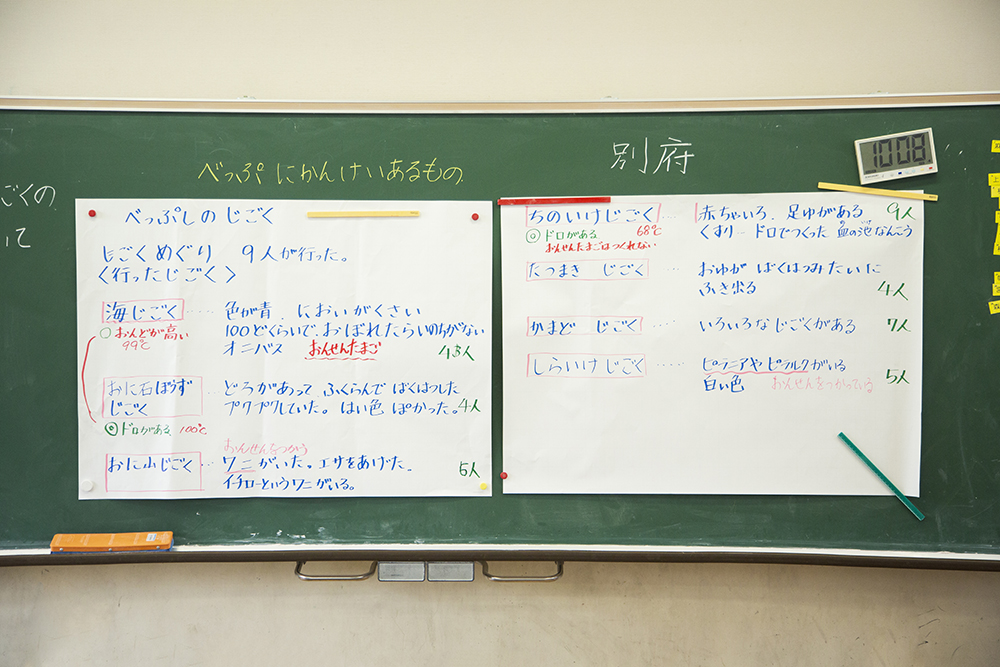 ごくの
いて
べっぷにかんけいあるもの
別府
1008
べっぷしのじごく
じごくめぐり 9人が行った。
〈行ったじごく〉
海じごく…… 色が青、においがくさい
○おんどが高い 100どくらいで、おぼれたらいのちがない
99℃ オニバス おんせんたまご 43人
おに石ぼうず じごく どろがあって ふくらんで ばくはつした
プクプクしていた。はい色 ぽかった。4人
◎ドロがある 100℃
おんせんをつかう
おに山じごく … ワニがいた。エサをあげた。 5人
イチローというワニがいる。
ちのいけじごく … 赤ちゃいろ、足ゆがある 9人
◎ドロがある 68℃ くすり-ドロでつくった 血の池なんこう
おんせんたまごはつくれない
たつまき じごく …… おゆが ばくはつみたいに
ふき出る 4人
かまど じごく …… いろいろなじごくがある 7人
しらいけじごく …… ピラニアや ピラルクがいる
白い色 おんせんをつかっている 5人